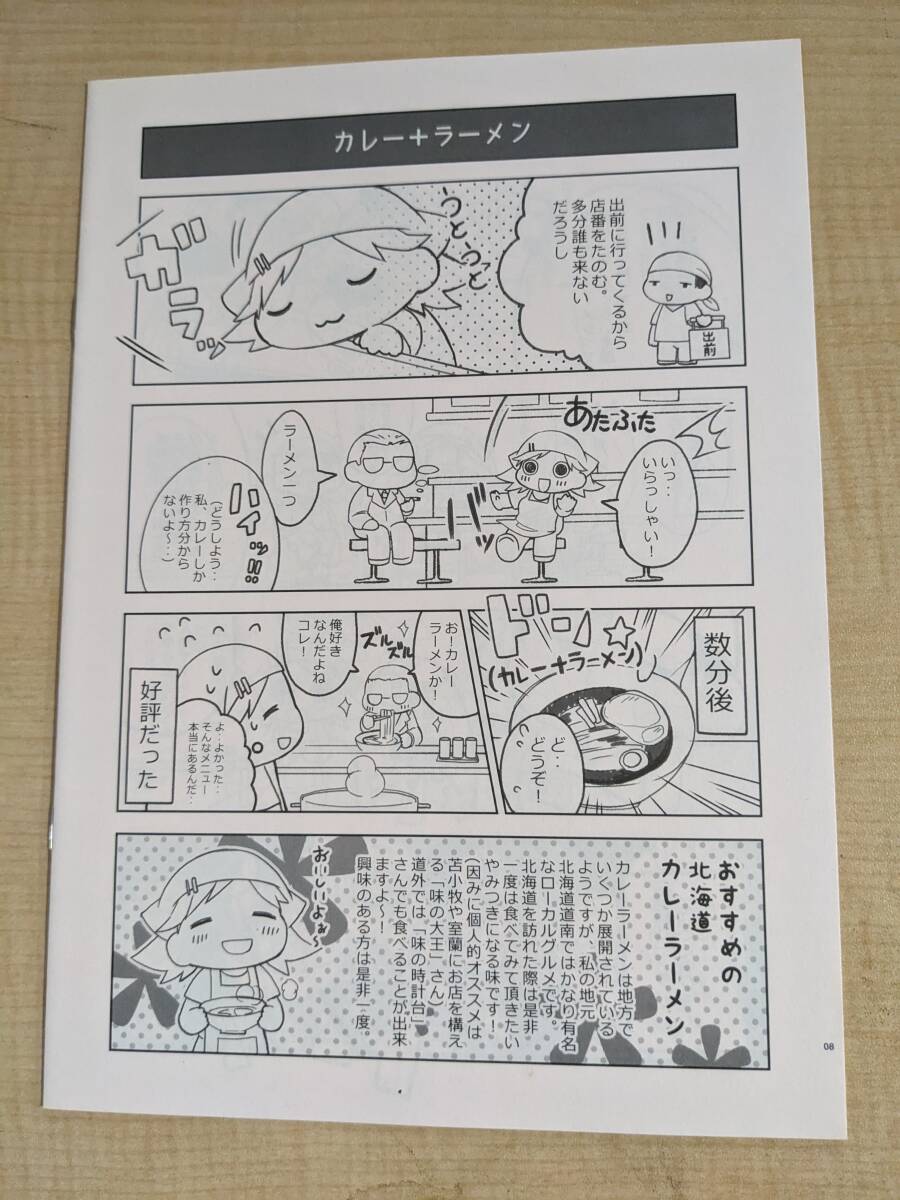 カレー+ラーメン
出前に行ってくるから
店番をたのむ。
多分誰も来ない
だろうし
出前
うと
うとっ
ガラッ
いっ‥
いらっしゃい!
あたふた
バッ
ラーメン一つ
ハイッ!!
(どうしよう‥
私、カレーしか
作り方分から
ないよ～‥)
数分後
ドーン☆
(カレー+ラーメン)
ど‥
どうぞ!
お!カレー
ラーメンか!
ズルズル
俺好き
なんだよね
コレ!
よ‥よかった‥
そんなメニュー
本当にあるんだ‥
好評だった
おすすめの
北海道
カレーラーメン
カレーラーメンは地方で
いくつか展開されている
ようですが、私の地元
北海道道南ではかなり有名
なローカルグルメです。
北海道を訪れた際は是非
一度は食べてみて頂きたい
やみつきになる味です!
(因みに個人的オススメは
苫小牧や室蘭にお店を構え
る「味の大王」さん)
道外では「味の時計台」
さんでも食べることが出来
ますよ～!
興味のある方は是非一度。
おいしいよぉ～
08